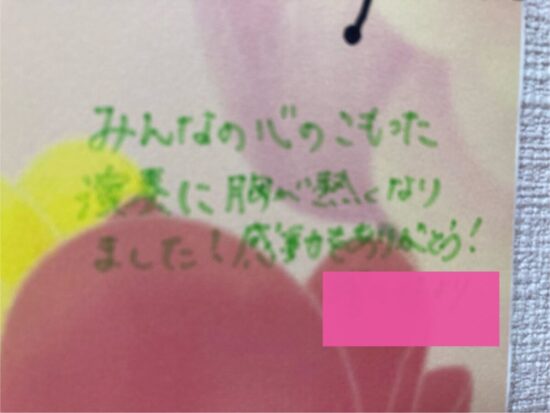 みんなの心のこもった
演奏に胸が熱くなり
ました!感動をありがとう!